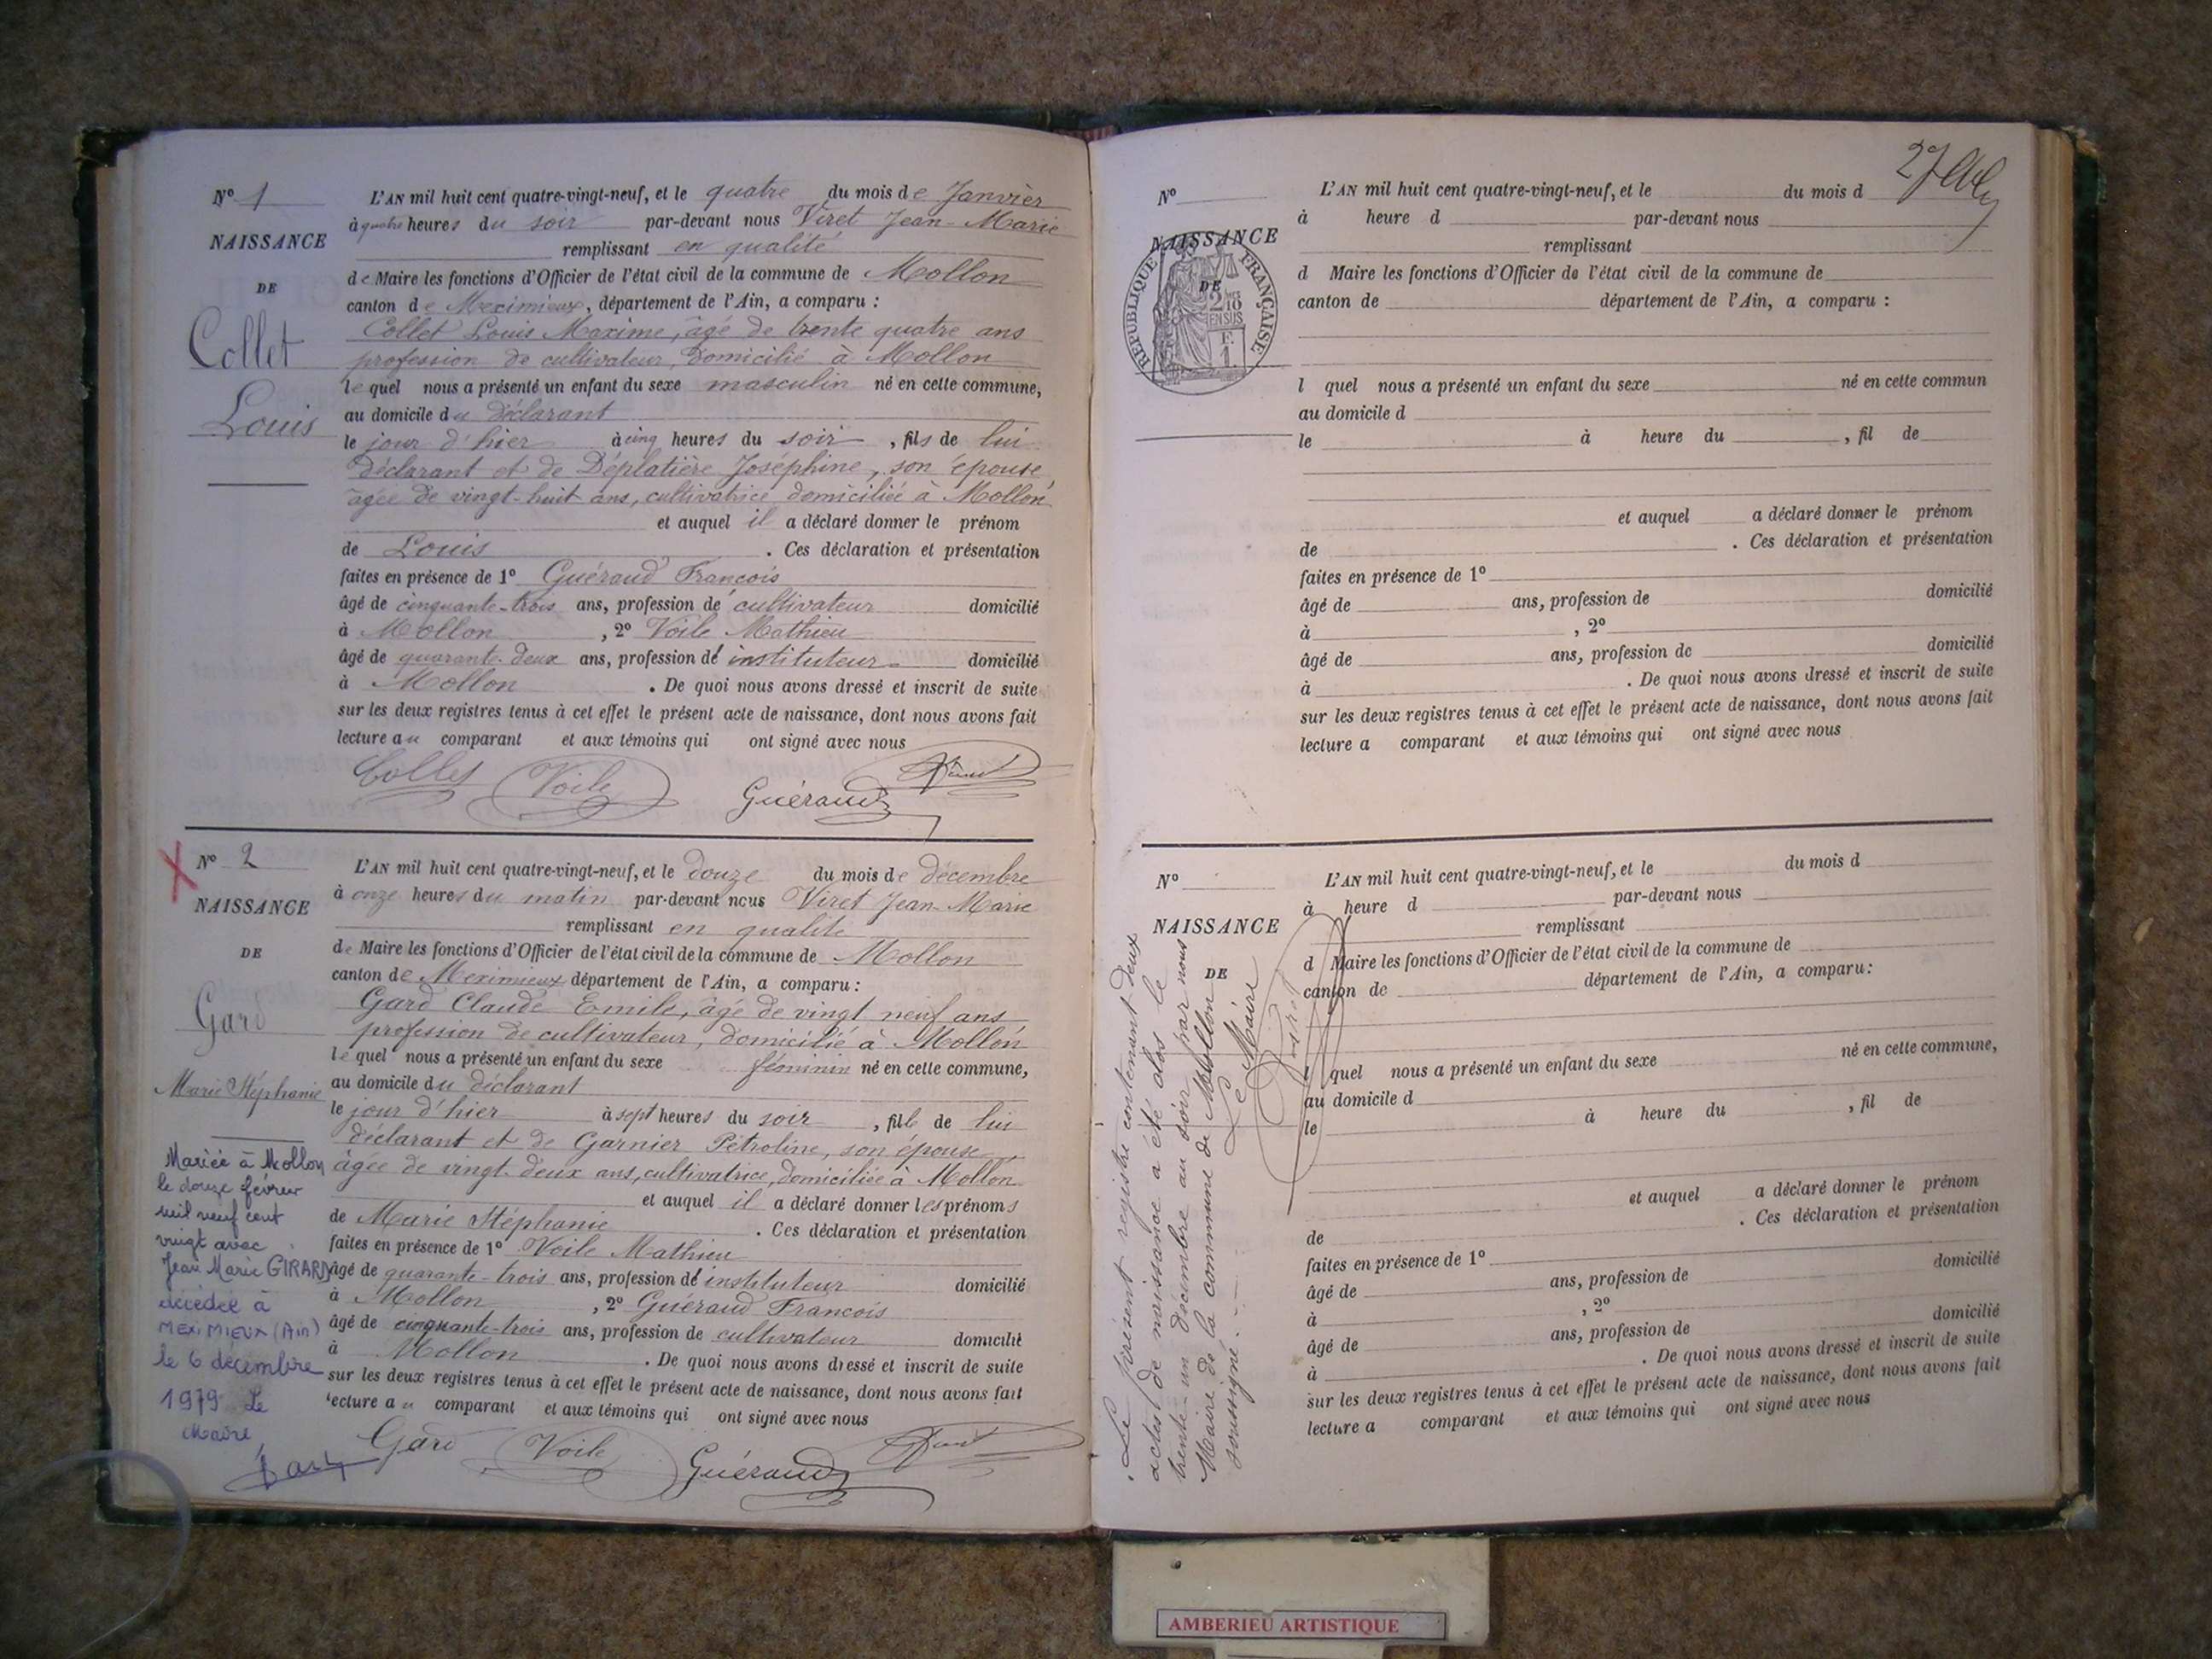 N° 1
NAISSANCE
DE
Collet
Louis
L'AN mil huit cent quatre-vingt-neuf, et le quatre du mois de Janvier
à quatre heures du soir par-devant nous Viret Jean-Marie
remplissant en qualité
de Maire les fonctions d'Officier de l'état civil de la commune de Mollon
canton de Meximieux, département de l'Ain, a comparu :
Collet Louis Maxime, âgé de trente quatre ans
profession de cultivateur, domicilié à Mollon
lequel nous a présenté un enfant du sexe masculin né en cette commune,
au domicile du déclarant
le jour d'hier à cinq heures du soir, fils de lui
déclarant et de Déplatière Joséphine, son épouse
âgée de vingt-huit ans, cultivatrice, domiciliée à Mollon
et auquel il a déclaré donner le prénom
de Louis. Ces déclaration et présentation
faites en présence de 1° Guéraud François
âgé de cinquante-trois ans, profession de cultivateur domicilié
à Mollon, 2° Voile Mathieu
âgé de quarante-deux ans, profession d' instituteur domicilié
à Mollon. De quoi nous avons dressé et inscrit de suite
sur les deux registres tenus à cet effet le présent acte de naissance, dont nous avons fait
lecture au comparant et aux témoins qui ont signé avec nous
Collet Voile Guéraud Viret
N° 2
NAISSANCE
DE
Gard
Marie Stéphanie
Mariée à Mollon
le douze février
mil neuf cent
vingt avec
Jean Marie GIRARD
décédée à
MEXIMIEUX (Ain)
le 6 décembre
1979 Le
Maire
L'AN mil huit cent quatre-vingt-neuf, et le douze du mois de décembre
à onze heures du matin par-devant nous Viret Jean-Marie
remplissant en qualité
de Maire les fonctions d'Officier de l'état civil de la commune de Mollon
canton de Meximieux département de l'Ain, a comparu :
Gard Claude Emile, âgé de vingt neuf ans
profession de cultivateur, domicilié à Mollon
lequel nous a présenté un enfant du sexe féminin né en cette commune,
au domicile du déclarant
le jour d'hier à sept heures du soir, fille de lui
déclarant et de Garnier Pétroline, son épouse
âgée de vingt-deux ans, cultivatrice, domiciliée à Mollon
et auquel il a déclaré donner les prénoms
de Marie Stéphanie. Ces déclaration et présentation
faites en présence de 1° Voile Mathieu
âgé de quarante-trois ans, profession d' instituteur domicilié
à Mollon, 2° Guéraud François
âgé de cinquante-trois ans, profession de cultivateur domicilié
à Mollon. De quoi nous avons dressé et inscrit de suite
sur les deux registres tenus à cet effet le présent acte de naissance, dont nous avons fait
lecture au comparant et aux témoins qui ont signé avec nous
Gard Voile Guéraud Viret
N°
NAISSANCE
DE
REPUBLIQUE FRANÇAISE
2 MES 10 EN SUS
F. 1
L'AN mil huit cent quatre-vingt-neuf, et le du mois d
à heure d par-devant nous
remplissant
d Maire les fonctions d'Officier de l'état civil de la commune de
canton de département de l'Ain, a comparu :
l quel nous a présenté un enfant du sexe né en cette commun
au domicile d
le à heure du , fil de
et auquel a déclaré donner le prénom
de . Ces déclaration et présentation
faites en présence de 1°
âgé de ans, profession de domicilié
à , 2°
âgé de ans, profession de domicilié
à . De quoi nous avons dressé et inscrit de suite
sur les deux registres tenus à cet effet le présent acte de naissance, dont nous avons fait
lecture a comparant et aux témoins qui ont signé avec nous
N°
NAISSANCE
DE
L'AN mil huit cent quatre-vingt-neuf, et le du mois d
à heure d par-devant nous
remplissant
d Maire les fonctions d'Officier de l'état civil de la commune de
canton de département de l'Ain, a comparu :
l quel nous a présenté un enfant du sexe né en cette commune,
au domicile d
le à heure du , fil de
et auquel a déclaré donner le prénom
de . Ces déclaration et présentation
faites en présence de 1°
âgé de ans, profession de domicilié
à , 2°
âgé de ans, profession de domicilié
à . De quoi nous avons dressé et inscrit de suite
sur les deux registres tenus à cet effet le présent acte de naissance, dont nous avons fait
lecture a comparant et aux témoins qui ont signé avec nous
Le présent registre contenant deux
actes de naissance a été clos le
trente-un décembre au soir par nous
Maire de la commune de Mollon
soussigné.
Le Maire
Viret
AMBERIEU ARTISTIQUE